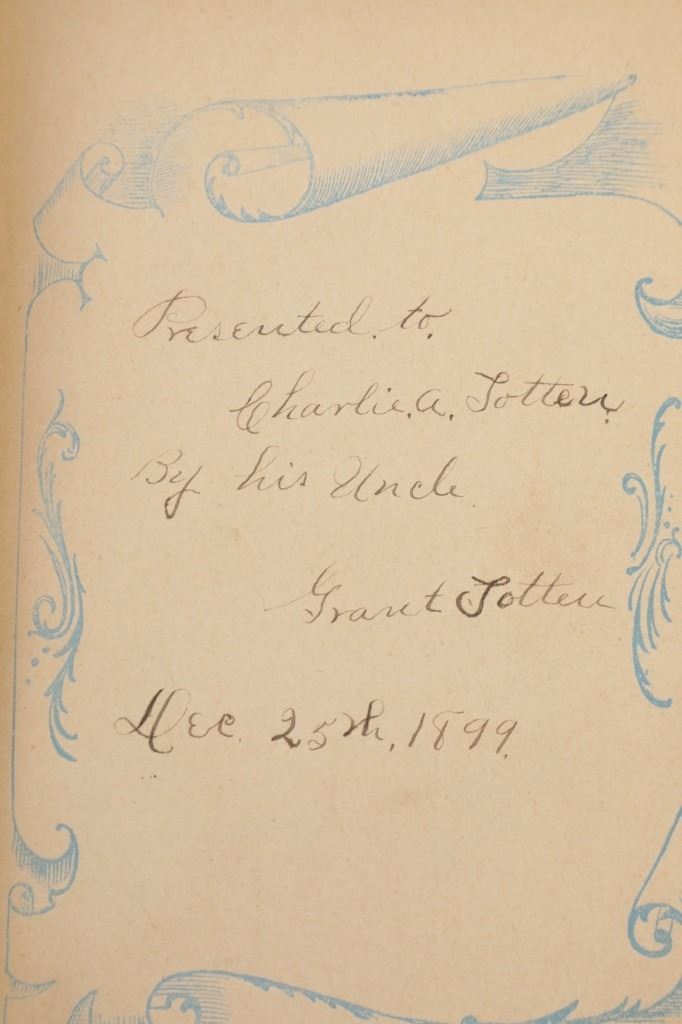 Presented. to.
Charlie. A. Totten.
By his Uncle
Grant Totten
Dec. 25th, 1899.